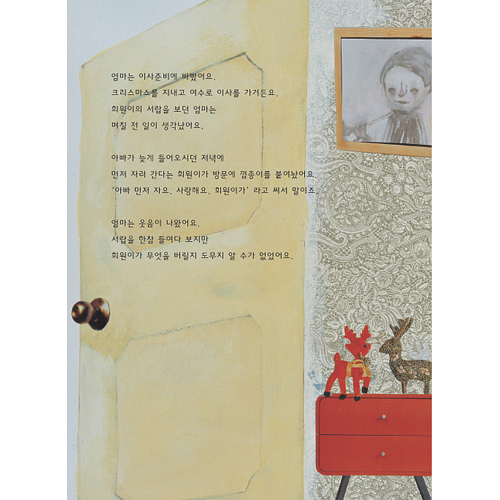 엄마는 이사준비에 바빴어요.
크리스마스를 지내고 여수로 이사를 가거든요.
희원이의 서랍을 보던 엄마는
며칠 전 일이 생각났어요.
아빠가 늦게 들어오시던 저녁에
먼저 자러 간다는 희원이가 방문에 껌종이를 붙여놨어요.
‘아빠 먼저 자요. 사랑해요. 희원이가’ 라고 써서 말이죠.
엄마는 웃음이 나왔어요.
서랍을 한참 들여다 보지만
희원이가 무엇을 버릴지 도무지 알 수가 없었어요.